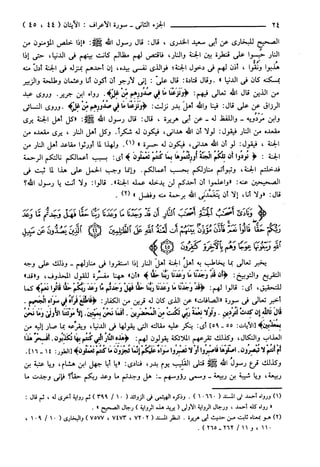 ٢٤ الجزء الثاني - سورة الأعراف : الآيتان (٤٤ ، ٤٥)
الصحيح للبخاري عن أبي سعيد الخدري ، قال : قال رسول الله ﷺ : «إذا خلص المؤمنون من
النار حبسوا على قنطرة بين الجنة والنار، فاقتص لهم مظالم كانت بينهم في الدنيا، حتى إذا
هذبوا ونقوا ، أذن لهم في دخول الجنة؛ فوالذي نفسي بيده، إن أحدهم بمنزله في الجنة أدل منه
بمسكنه كان في الدنيا» . وقال قتادة: قال علي : إني لأرجو أن أكون أنا وعثمان وطلحة والزبير
من الذين قال الله تعالى فيهم: ﴿ونزعنا ما في صدورهم من غل﴾. رواه ابن جرير. وروى عبد
الرزاق عن علي قال: فينا والله أهل بدر نزلت: ﴿ونزعنا ما في صدورهم من غل﴾. وروى النسائي
وابن مردويه - واللفظ له - عن أبي هريرة ، قال: قال رسول الله ﷺ: «كل أهل الجنة يرى
مقعده من النار فيقول: لولا أن الله هداني، فيكون له شكراً. وكل أهل النار ، يرى مقعده من
الجنة ، فيقول: لو أن الله هداني، فيكون له حسرة» (١). ولهذا لما أورثوا مقاعد أهل النار من
الجنة : ﴿نودوا أن تلكم الجنة أورثتموها بما كنتم تعملون﴾ أي: بسبب أعمالكم نالتكم الرحمة
فدخلتم الجنة، وتبوأتم منازلكم بحسب أعمالكم. وإنما وجب الحمل على هذا لما ثبت في
الصحيحين عنه: «واعلموا أن أحدكم لن يدخله عمله الجنة». قالوا: ولا أنت يا رسول الله؟
قال: «ولا أنا، إلا أن يتغمدني الله برحمة منه وفضل» (٢) .
ونادى أصحاب الجنة أصحاب النار أن قد وجدنا ما وعدنا ربنا حقا فهل وجدتم ما وعد
ربكم حقا قالوا نعم فأذن مؤذن بينهم أن لعنة الله على الظالمين ﴿٤٤﴾ الذين يصدون عن سبيل الله
ويبغونها عوجا وهم بالآخرة كافرون ﴿٤٥﴾
يخبر تعالى بما يخاطب به أهل الجنة أهل النار إذا استقروا في منازلهم - وذلك على وجه
التقريع والتوبيخ: ﴿أن قد وجدنا ما وعدنا ربنا حقا﴾ «أن» ههنا مفسرة للقول المحذوف، و«قد»
للتحقيق، أي: قالوا لهم: ﴿قد وجدنا ما وعدنا ربنا حقا فهل وجدتم ما وعد ربكم حقا قالوا نعم﴾ كما
أخبر تعالى في سورة «الصافات» عن الذي كان له قرين من الكفار: ﴿فاطلع فرآه في سواء الجحيم .
قال تالله إن كدت لتردين . ولولا نعمة ربي لكنت من المحضرين . أفما نحن بميتين. إلا موتتنا الأولى وما نحن
بمعذبين﴾ [الآيات: ٥٥ - ٥٩] أي: ينكر عليه مقالته التي يقولها في الدنيا، ويقرعه بما صار إليه من
العذاب والنكال، وكذلك تقرعهم الملائكة يقولون لهم: ﴿هذه النار التي كنتم بها تكذبون. أفسحر هذا
أم أنتم لا تبصرون. اصلوها فاصبروا أو لا تصبروا سواء عليكم إنما تجزون ما كنتم تعملون﴾ [الطور: ١٤ - ١٦].
وكذلك قرع رسول الله ﷺ قتلى القليب يوم بدر، فنادى: «يا أبا جهل ابن هشام، ويا عتبة بن
ربيعة، ويا شيبة بن ربيعة - وسمى رؤوسهم -: هل وجدتم ما وعد ربكم حقاً؟ فإني وجدت ما
(١) ورواه أحمد في المسند ( ١٠٦٦٠ ) . وذكره الهيثمي في الزوائد ( ١٠ / ٣٩٩ ) ثم رواية أخرى له ، ثم قال :
« رواه كله أحمد ، ورجال الرواية الأولى ( يريد هذه الرواية ) رجال الصحيح » .
(٢) هو بمعناه ثابت من حديث أبي هريرة . انظر المسند ( ٧٢٠٢ ، ٧٤٧٣ ، ٧٥٧٧ ) والبخاري ( ١٠ / ١٠٩ ،
١١٠ و ١١ / ٢٦٢ - ٢٦٥ ) .